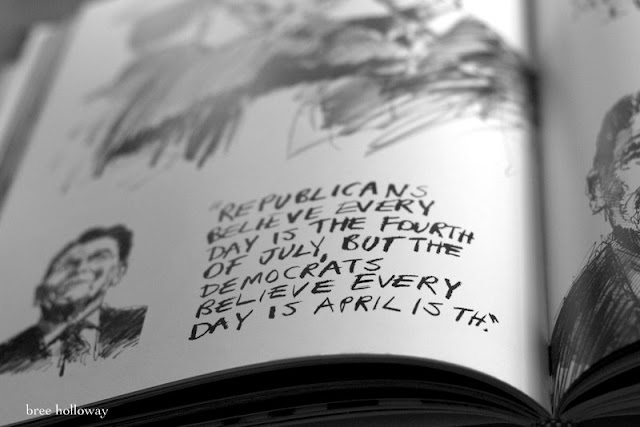 "REPUBLICANS
BELIEVE EVERY
DAY IS THE FOURTH
OF JULY, BUT THE
DEMOCRATS
BELIEVE EVERY
DAY IS APRIL 15TH."
bree holloway